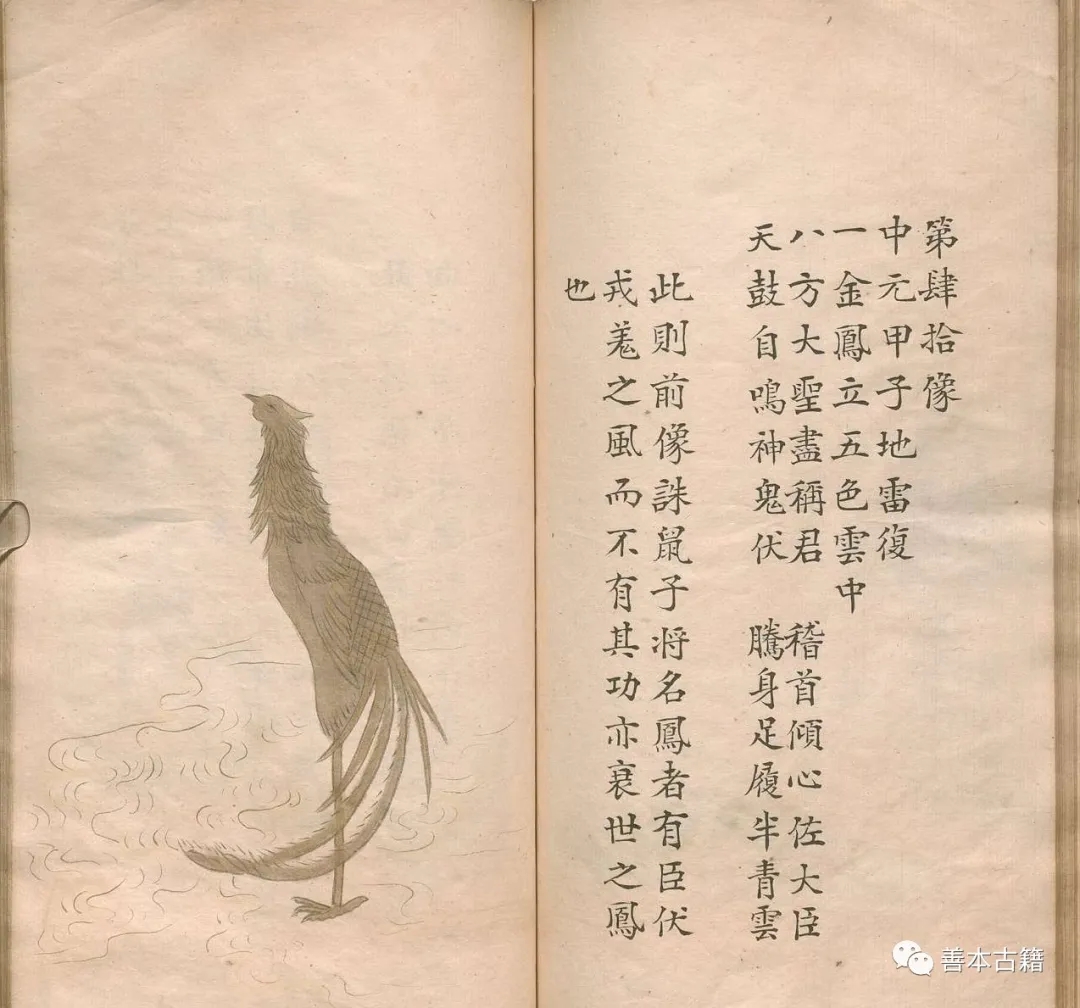 第肆拾像
中元甲子地雷復
一金鳳立五色雲中
八方大聖盡稱君 稽首傾心佐大臣
天鼓自鳴神鬼伏 騰身足履半青雲
此則前像誅鼠子將名鳳者有臣伏
戎羗之風而不有其功亦衰世之鳳
也
善本古籍